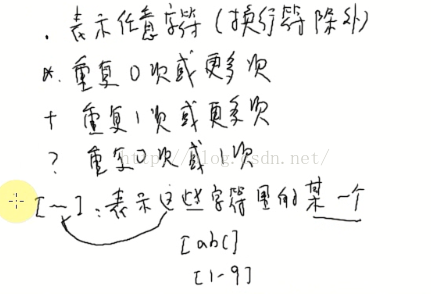 . 表示任意字符(换行符除外)
*. 重复0次或更多次
+ 重复1次或更多次
? 重复0次或1次
http://blog.csdn.net/
[~]:表示这些字符里的某一个
[abc]
[1-9]